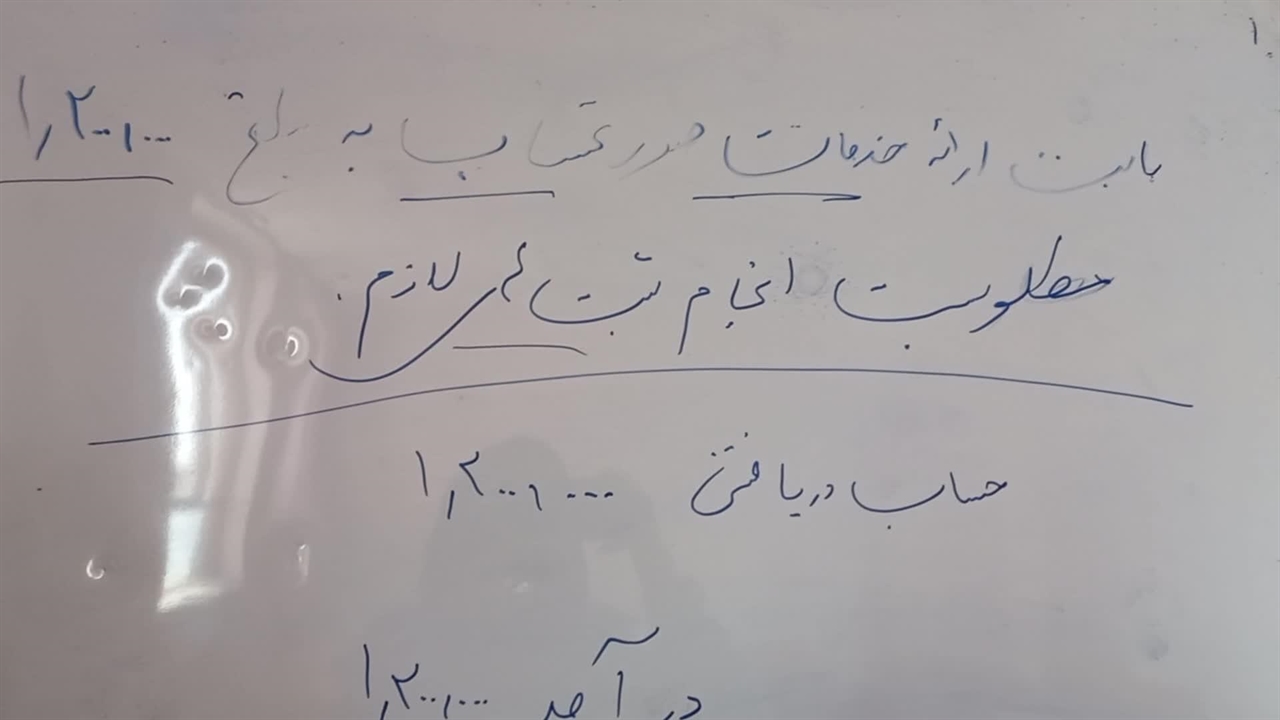 ۱
بابت ارائه خدمات صورتحساب به مبلغ ۱,۲۰۰,۰۰۰
مطلوبست انجام ثبت های لازم.
حساب دریافتنی ۱,۲۰۰,۰۰۰
درآمد ۱,۲۰۰,۰۰۰